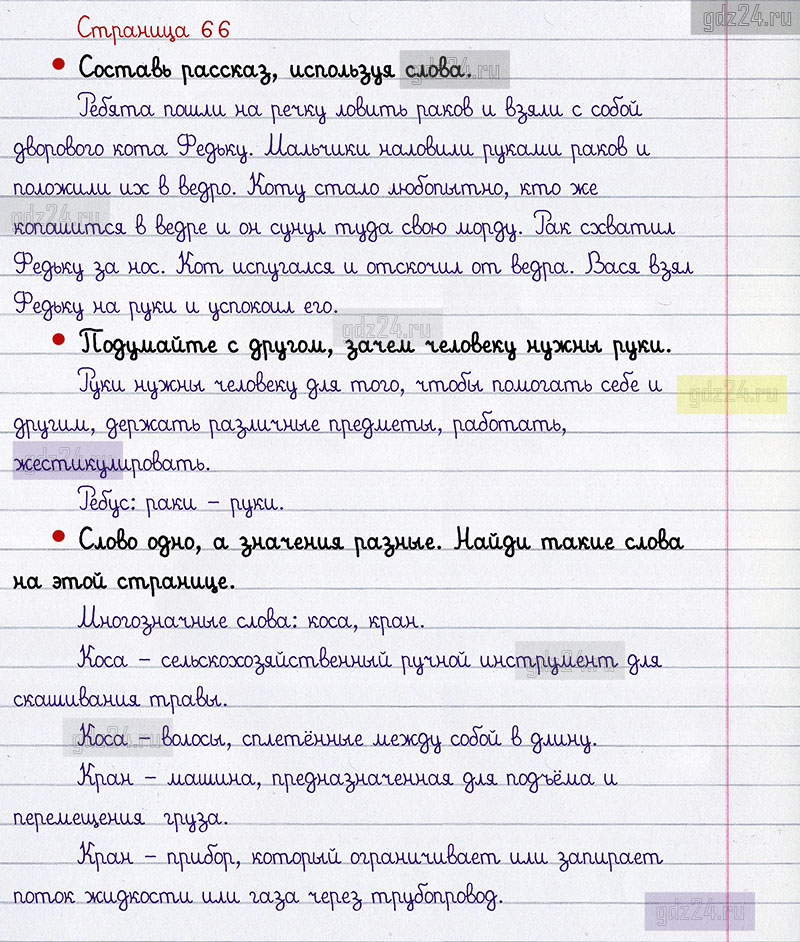 gdz24.ru
Страница 66
• Составь рассказ, используя слова.
gdz24.ru
Ребята пошли на речку ловить раков и взяли с собой
дворового кота Федьку. Мальчики наловили руками раков и
положили их в ведро. Коту стало любопытно, кто же
gdz24.ru
копашится в ведре и он сунул туда свою морду. Рак схватил
Федьку за нос. Кот испугался и отскочил от ведра. Вася взял
Федьку на руки и успокоил его.
gdz24.ru
• Подумайте с другом, зачем человеку нужны руки.
Руки нужны человеку для того, чтобы помогать себе и
gdz24.ru
другим, держать различные предметы, работать,
жестикулировать.
gdz24.ru
Ребус: раки – руки.
• Слово одно, а значения разные. Найди такие слова
на этой странице.
Многозначные слова: коса, кран.
Коса – сельскохозяйственный ручной инструмент для
gdz24.ru
скашивания травы.
Коса – волосы, сплетённые между собой в длину.
gdz24.ru
Кран – машина, предназначенная для подъёма и
перемещения груза.
Кран – прибор, который ограничивает или запирает
поток жидкости или газа через трубопровод.
gdz24.ru